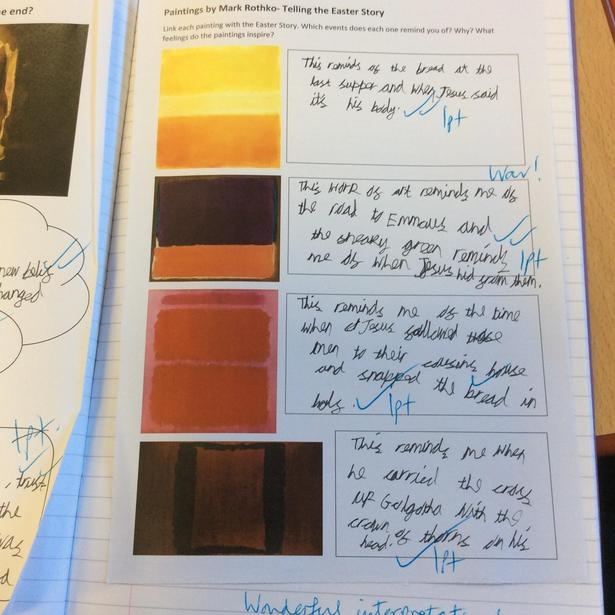 e end?
Paintings by Mark Rothko- Telling the Easter Story
Link each painting with the Easter Story. Which events does each one remind you of? Why? What
feelings do the paintings inspire?
This reminds of the bread at the
last supper and when Jesus said
it's his body.
1pt
Wow!
This work of art reminds me of
the road to Emmaus and
the sneaky green reminds
me of when Jesus hid from them.
1pt
This reminds me of the time
when Jesus followed those
men to their cousins house
and snapped the bread in
1pt
This reminds me when
he carried the cross
up Golgotha with the
crown of thorns on his
head.
1pt
new
hanged
1pt
, trust
the
was
d
Wonderful